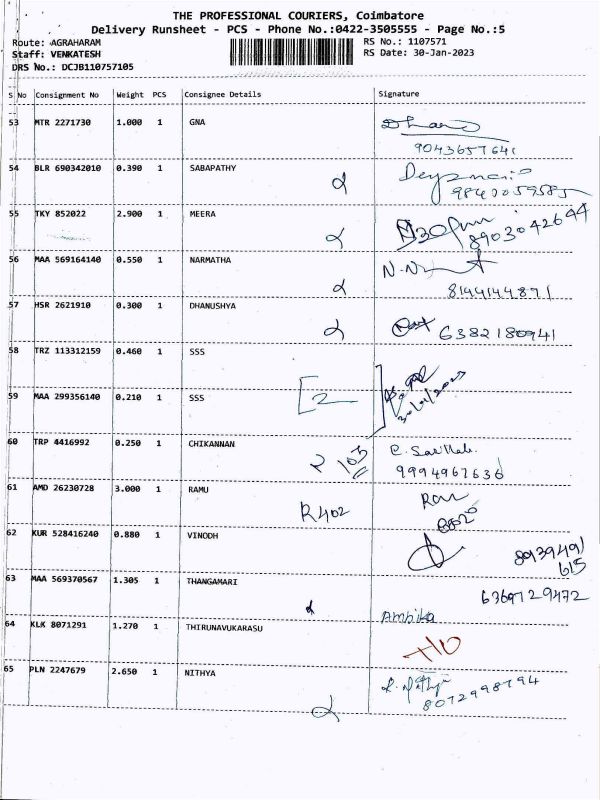 THE PROFESSIONAL COURIERS, Coimbatore
Delivery Runsheet - PCS - Phone No.:0422-3505555 - Page No.:5
Route: AGRAHARAM RS No.: 1107571
Staff: VENKATESH RS Date: 30-Jan-2023
DRS No.: DCJB110757105
S No Consignment No Weight PCS Consignee Details Signature
53 MTR 2271730 1.000 1 GNA
9043657641
54 BLR 690342010 0.390 1 SABAPATHY
55 TKY 852022 2.900 1 MEERA
8903042644
56 MAA 569164140 0.550 1 NARMATHA
8144144891
57 HSR 2621910 0.300 1 DHANUSHYA
6382180941
58 TRZ 113312159 0.460 1 SSS
59 MAA 299356140 0.210 1 SSS
2
30/01/2023
60 TRP 4416992 0.250 1 CHIKANNAN
103
9994967636
61 AMD 26230728 3.000 1 RAMU
R402
62 KUR 528416240 0.880 1 VINODH
8939491
615
63 MAA 569370567 1.305 1 THANGAMARI
6369729472
Ambika
64 KLK 8071291 1.270 1 THIRUNAVUKARASU
65 PLN 2247679 2.650 1 NITHYA
8072998794